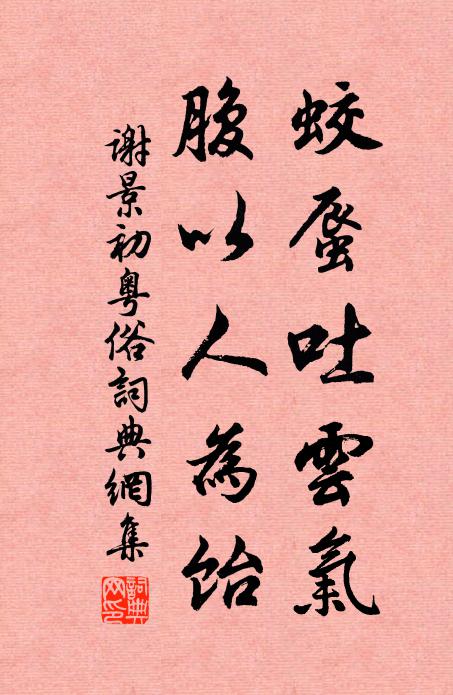 蛟蜃吐雲氣
腹以人為飴
謝景初粵俗詞典網集
詞典網印